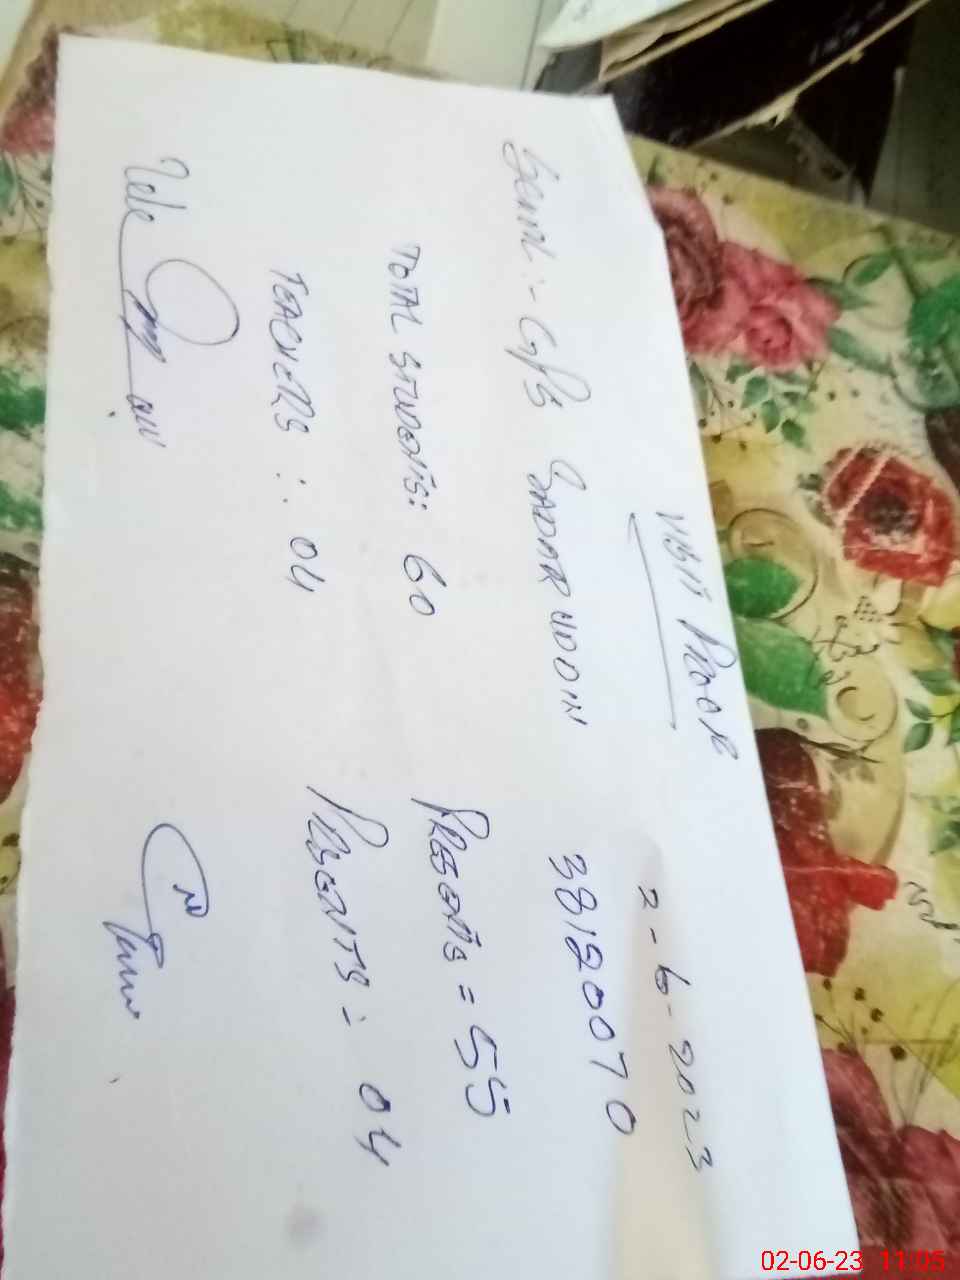 VISIT PROOF
2-6-2023
School :- GPS SADAR UDDIN 38120070
TOTAL STUDENTS: 60 PRESENTS = 55
TEACHERS : 04 PRESENTS : 04
02-06-23 11:05